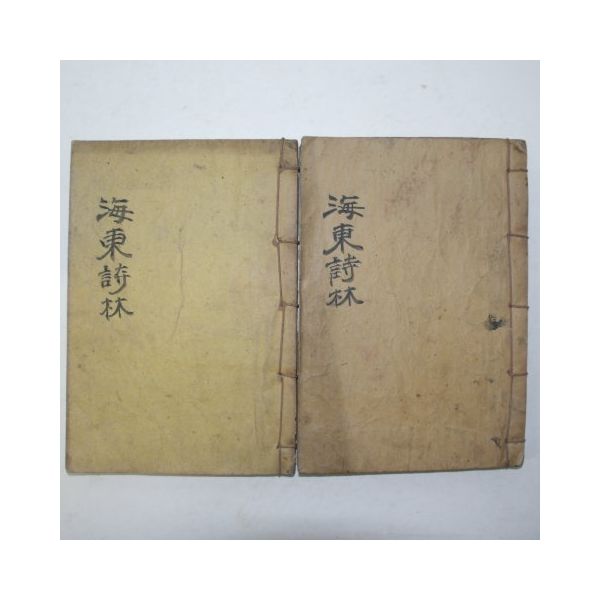 海東詩林
海東詩林